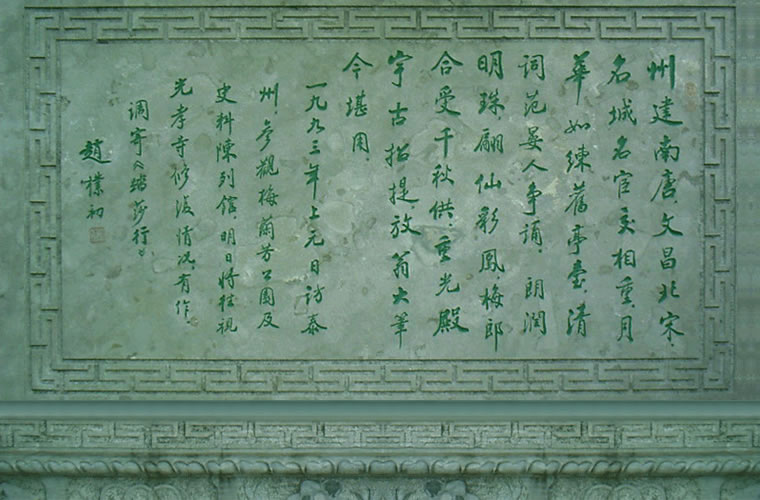 州建南唐，文昌北宋，
名城名宦交相重。月
華如練舊亭臺，清
詞范晏人争誦。朗潤
明珠，翩仙彩鳳，梅郎
合受千秋供。重光殿
宇古招提，放翁大筆
今堪用。
一九九三年上元日訪泰
州，参觀梅蘭芳公園及
史料陳列館，明日將往視
光孝寺修復情况，有作。
調寄《踏莎行》。
趙樸初